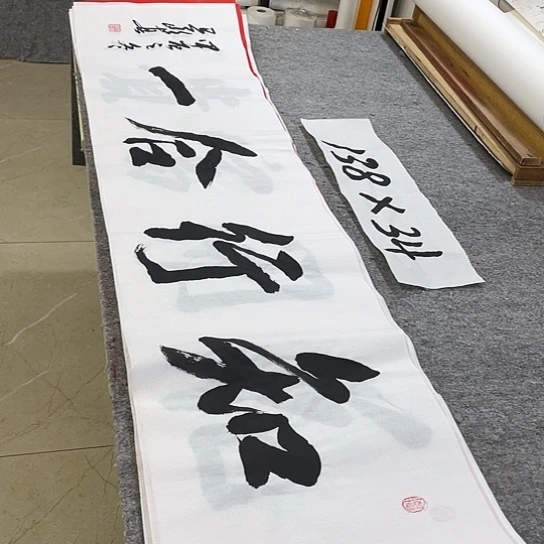 知行合一
甲辰之冬
138 x 34